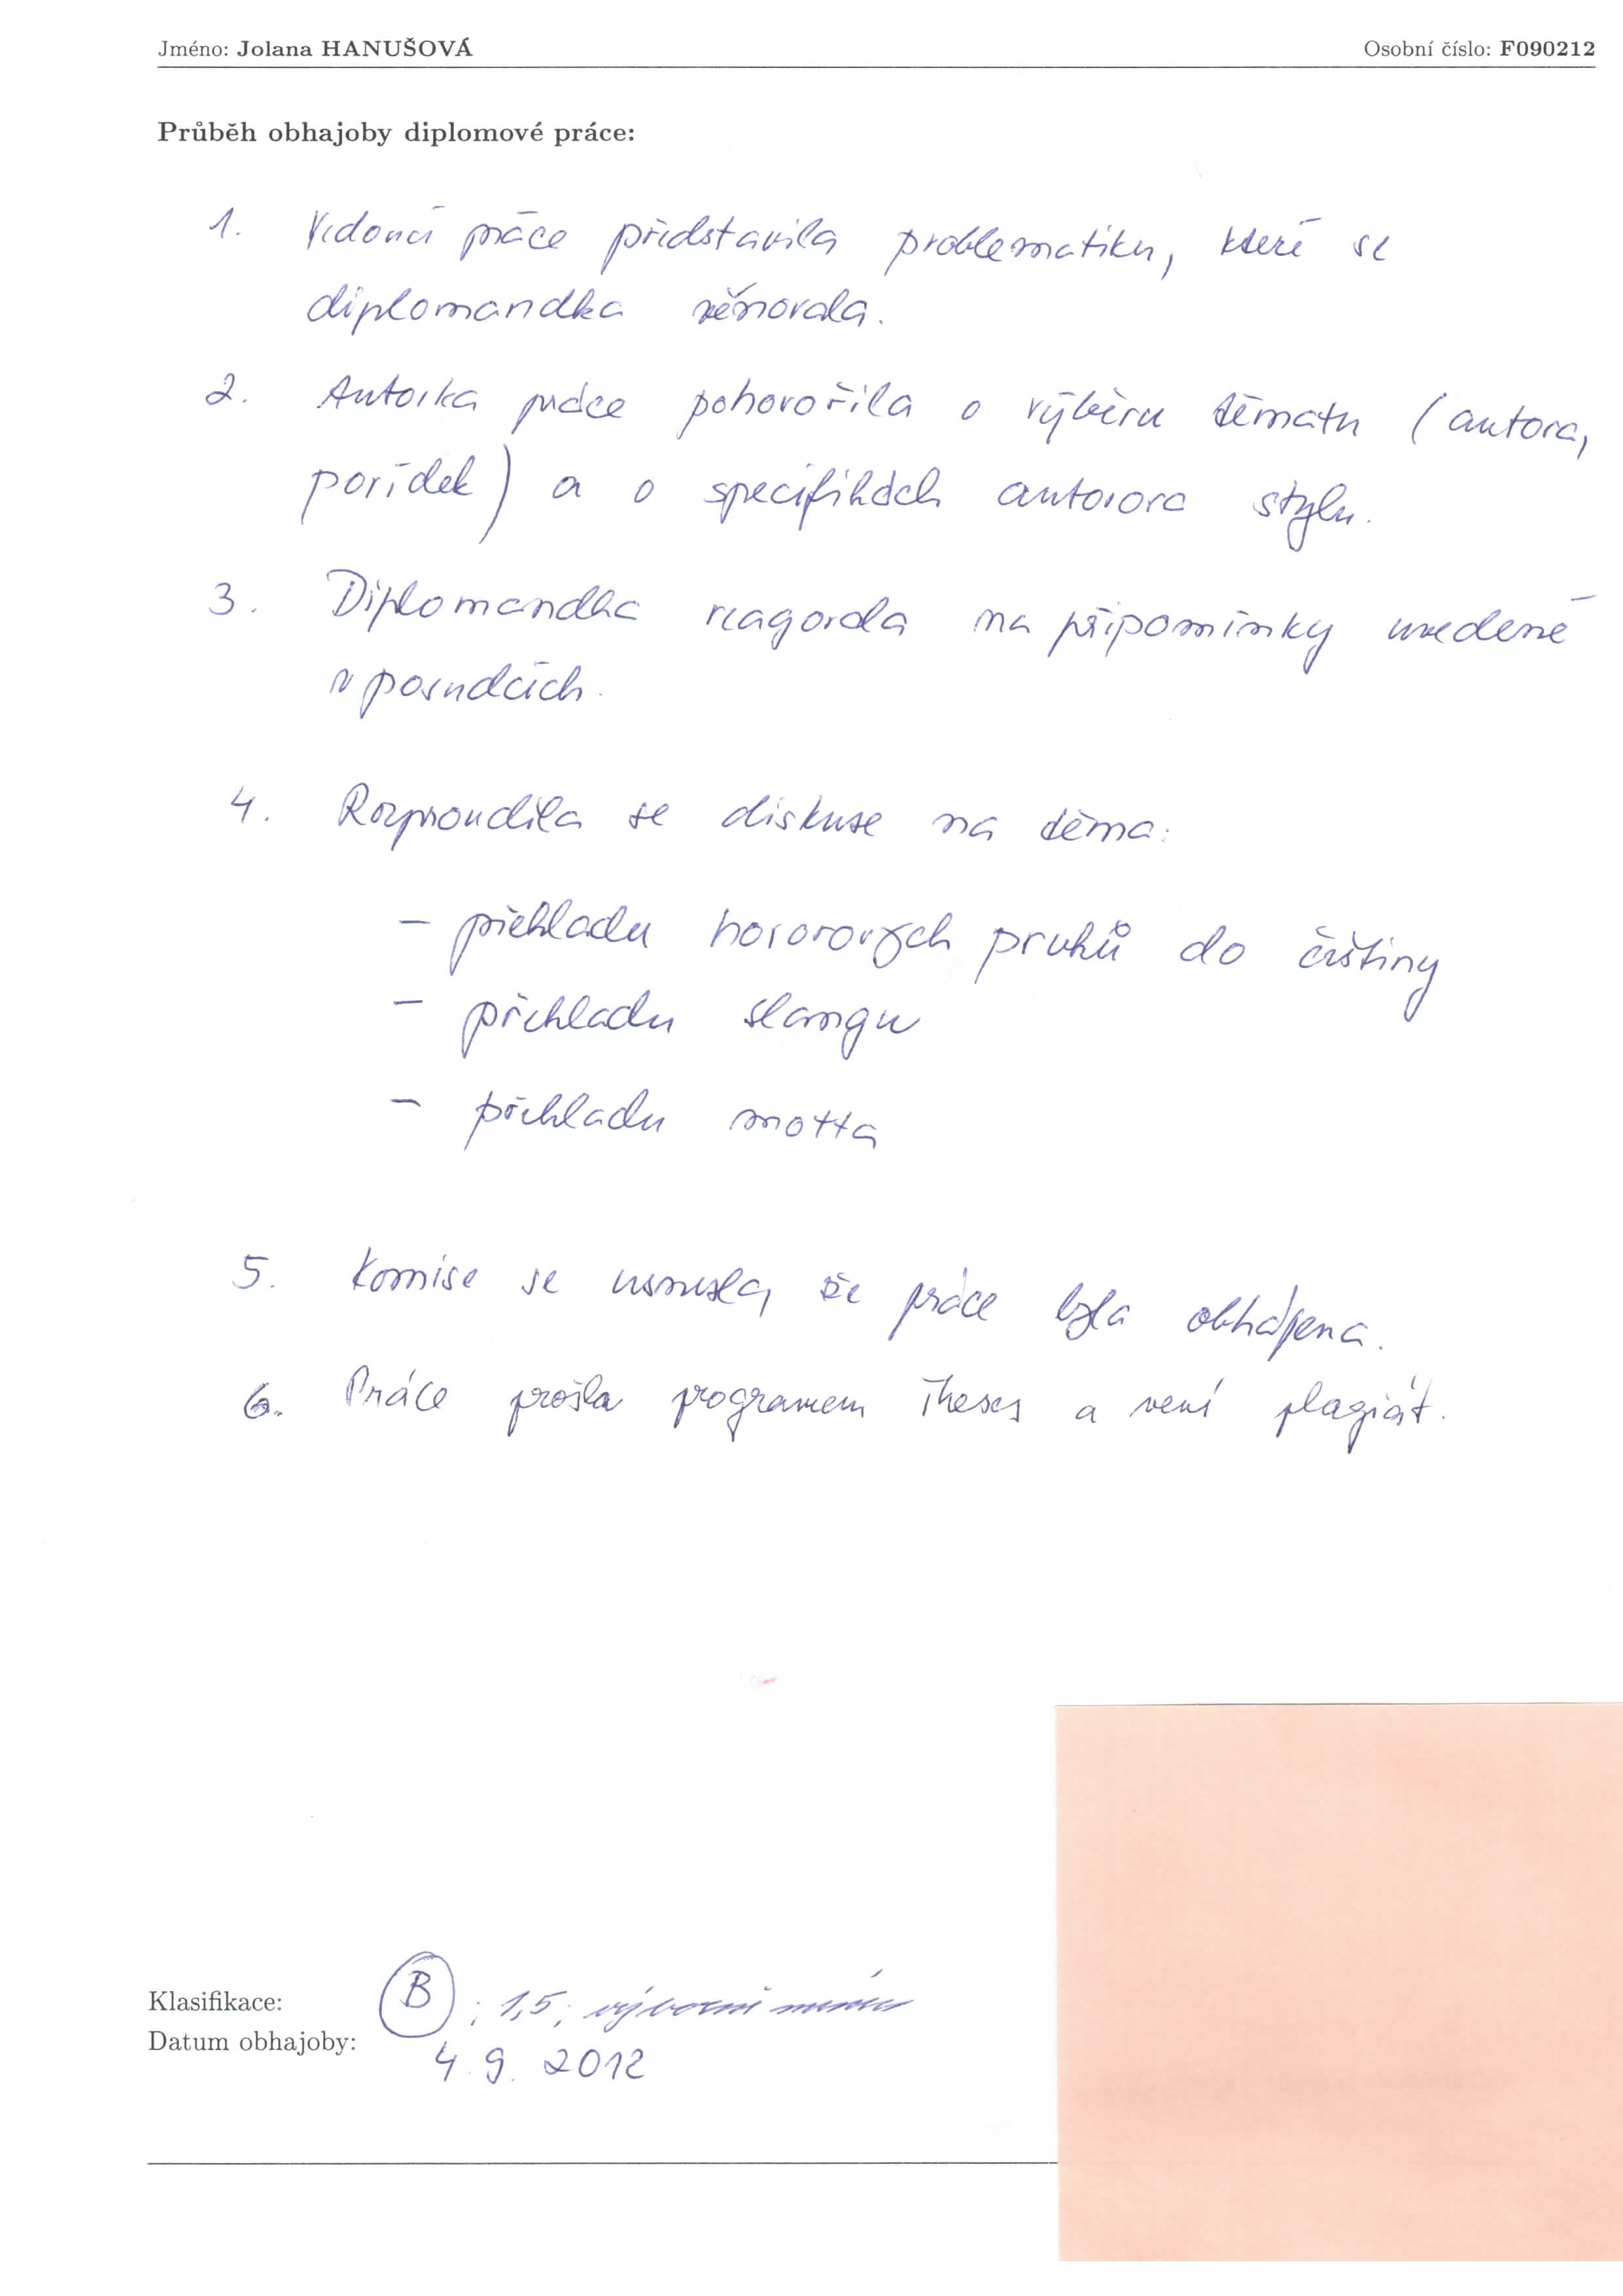 Jméno: Jolana HANUŠOVÁ Osobní číslo: F090212
Průběh obhajoby diplomové práce:
1. Vedoucí práce představila problematiku, které se
diplomandka věnovala.
2. Autorka práce pohovořila o výběru tématu (autora,
povídek) a o specifikách autorova stylu.
3. Diplomandka reagovala na připomínky uvedené
v posudcích.
4. Rozproudila se diskuse na téma:
– překladu hororových prvků do češtiny
– překladu slangu
– překladu motta
5. Komise se usnesla, že práce byla obhájena.
6. Práce prošla programem Theses a není plagiát.
Klasifikace: B ; 1,5;
Datum obhajoby: 4. 9. 2012